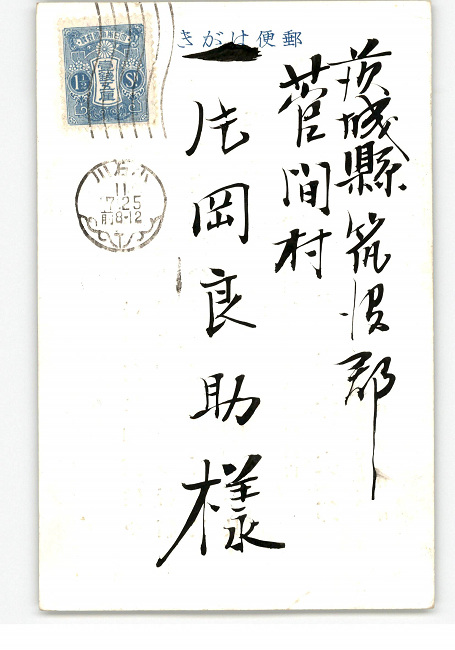 きがは便郵
茨城縣筑波郡
菅間村
片岡良助様
大日本帝國郵便
壹錢五厘
1½ Sn
11
7.25
前8-12